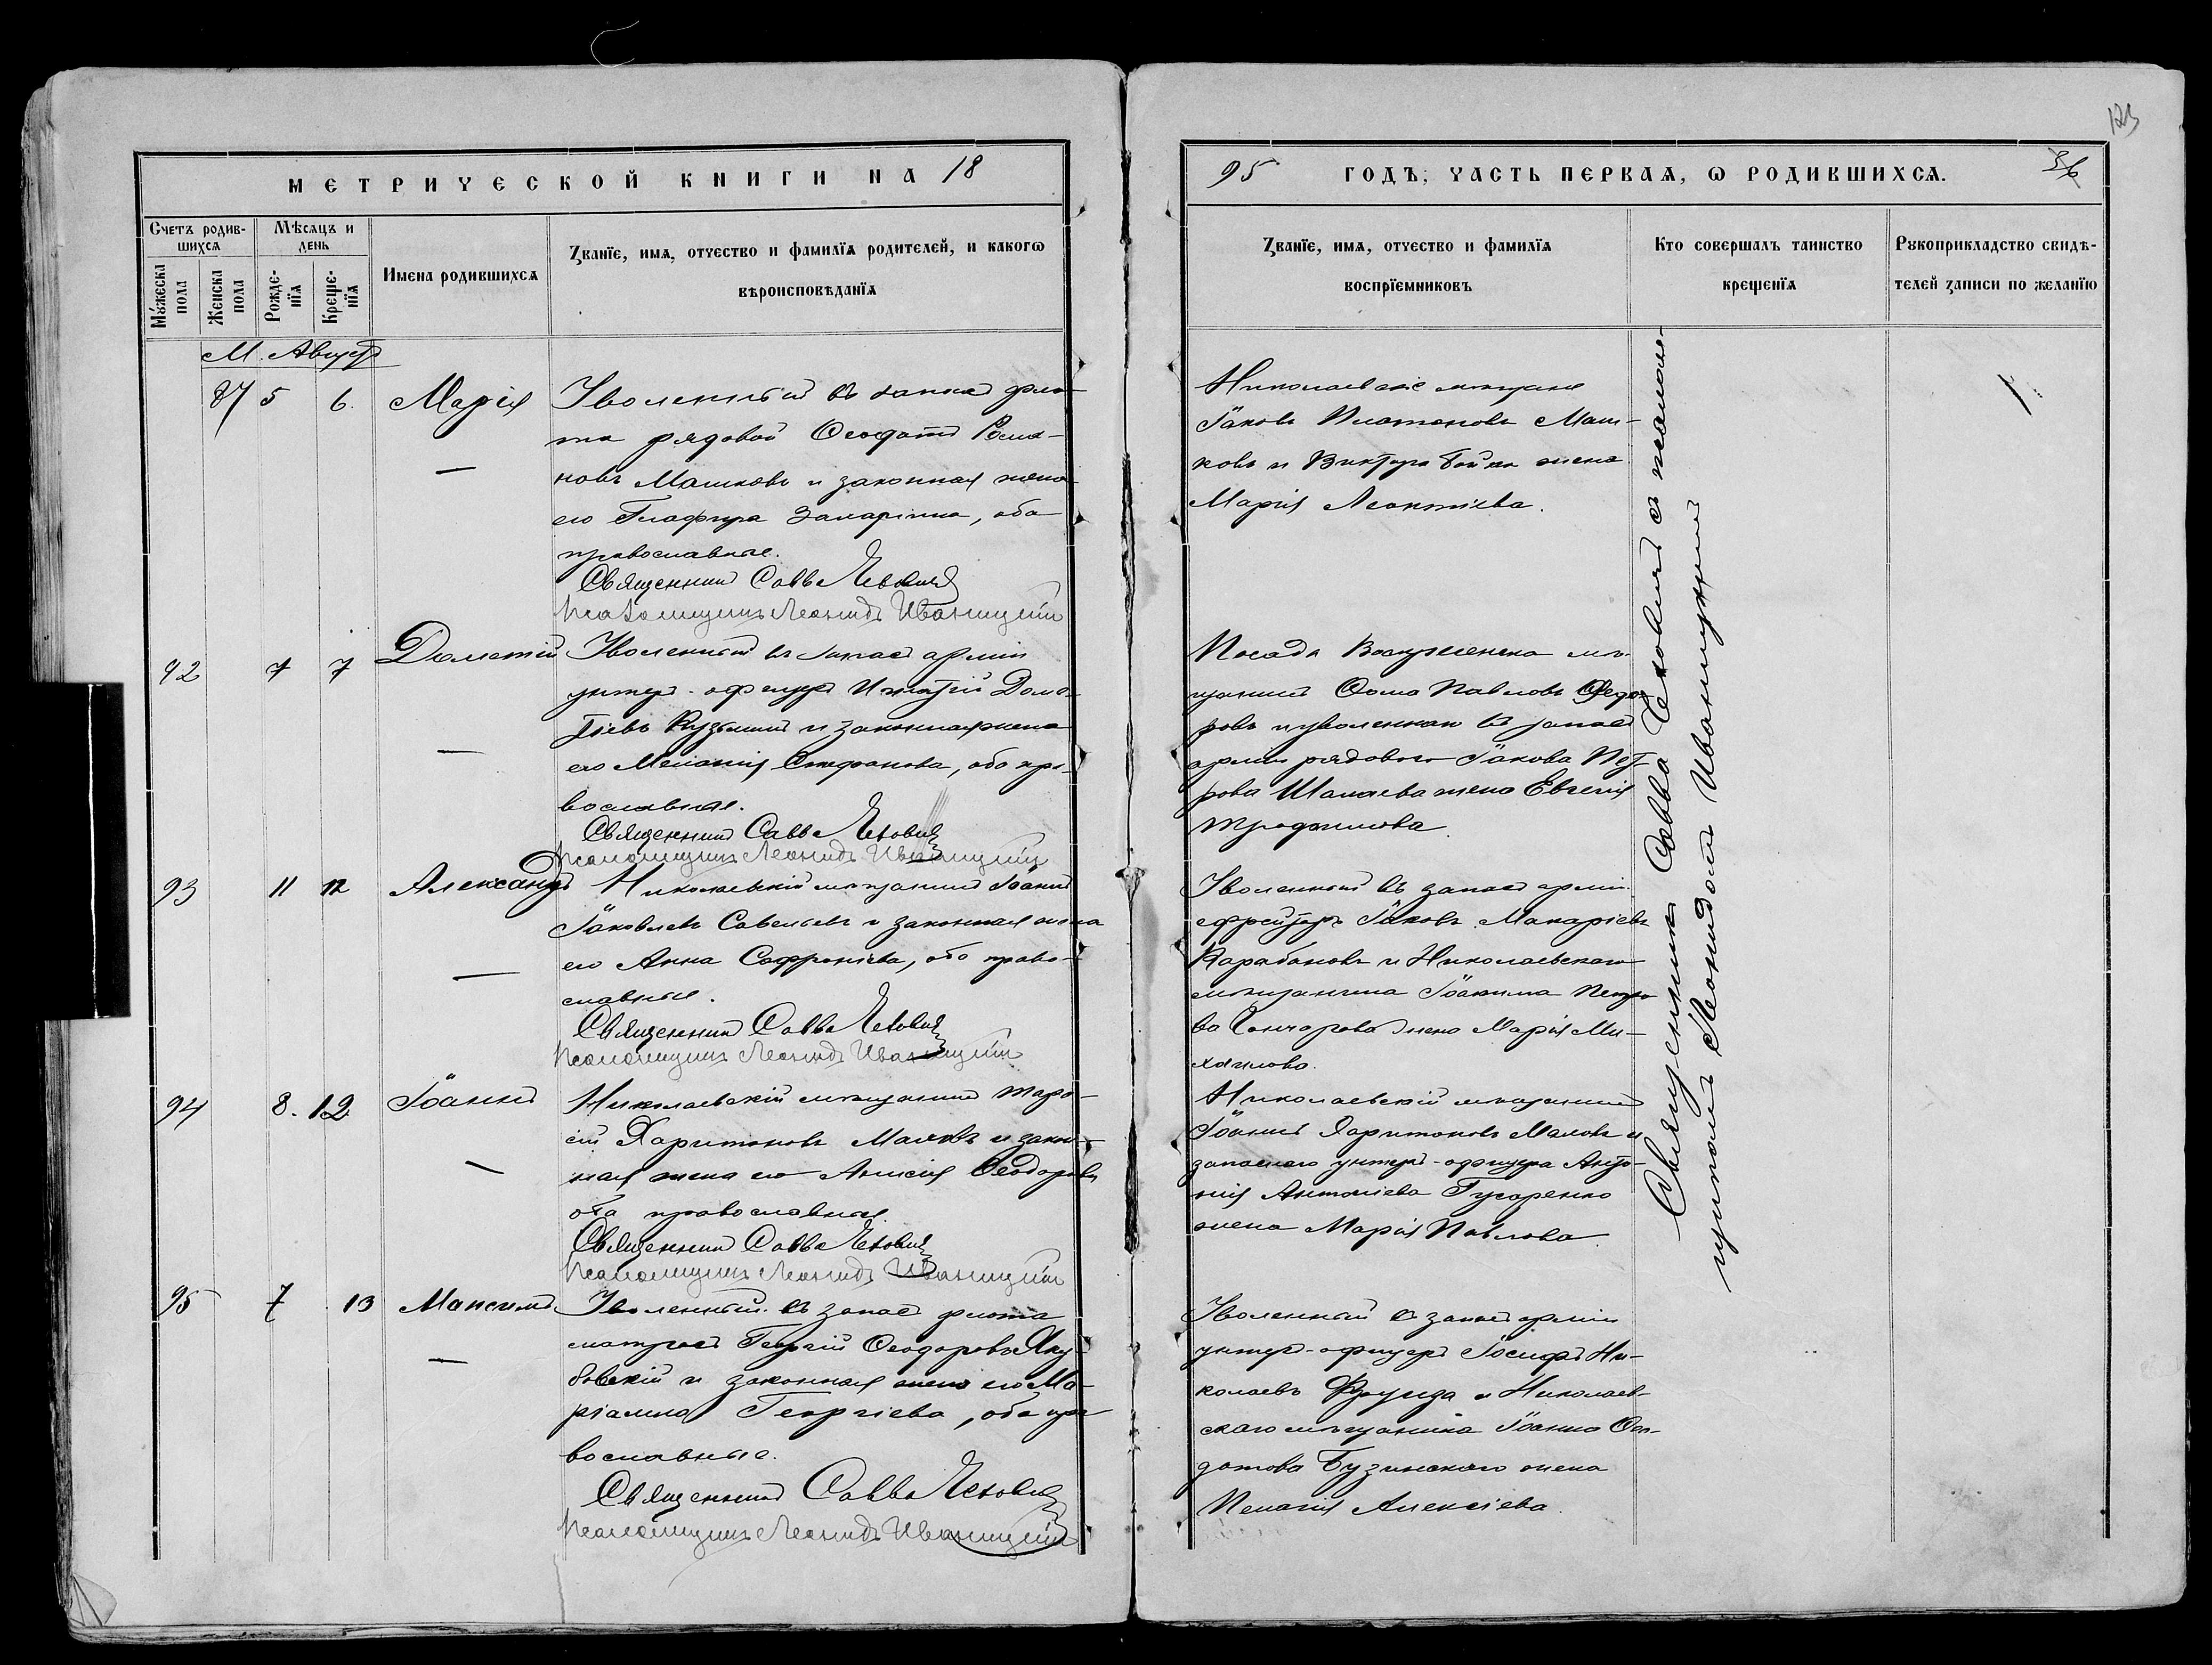 123
МЕТРИЧЕСКОЙ КНИГИ НА 18
95 ГОДЪ, ЧАСТЬ ПЕРВАЯ, Ѡ РОДИВШИХСЯ.
36
Счетъ родив-
шихсѧ
Мѣсѧцъ и
день
Мꙋжеска
пола
Женска
пола
Рожде-
нїѧ
Креще-
нїѧ
Имена родившихсѧ
Званїе, имѧ, отчество и фамилїѧ родителей, и какогѡ
вѣроисповѣданїѧ
Званїе, имѧ, отчество и фамилїѧ
воспрїемниковъ
Кто совершалъ таинство
крещенїѧ
Рꙋкоприкладство свидѣ-
телей записи по желанїю
М. Августъ
87 5 6. Марія
Уволенный въ запасъ фло-
та рядовой Ѳеодотъ Рома-
новъ Машковъ и законная жена
его Глафира Захаріина, оба
православные.
Священникъ Савва
Псаломщикъ Леонидъ Иваницкій
Николаевскіе мѣщане
Іаковъ Платоновъ Маш-
ковъ и Виктора Бойко жена
Марія Леонтіева.
92 7 7 Дометій
Уволенный въ запасъ арміи
унтеръ-офицеръ Игнатій Доме-
тіевъ Кузьминъ и законная жена
его Меланія Стефанова, оба пра-
вославные.
Священникъ Савва
Псаломщикъ Леонидъ Иваницкій
Посада Воскресенска мѣ-
щанинъ Ѳома Павловъ Ѳедо-
ровъ и уволеннаго въ запасъ
арміи рядового Іакова Пет-
рова Шамаева жена Евгенія
Трофимова.
93 11 12 Александръ
Николаевскій мѣщанинъ Іоаннъ
Іаковлевъ Савельевъ и законная жена
его Анна Софроніева, оба право-
славные.
Священникъ Савва
Псаломщикъ Леонидъ Иваницкій
Уволенный въ запасъ арміи
ефрейторъ Іаковъ Макаріевъ
Карабановъ и Николаевскаго
мѣщанина Іоакима Петро-
ва Гончарова жена Марія Ми-
хаилова.
94 8. 12 Іоаннъ
Николаевскій мѣщанинъ Тара-
сій Харитоновъ Маловъ и закон-
ная жена его Анисія Ѳеодорова
оба православные.
Священникъ Савва
Псаломщикъ Леонидъ Иваницкій
Николаевскій мѣщанинъ
Іоаннъ Харитоновъ Маловъ и
запаснаго унтеръ-офицера Анто-
нія Антоніева Гусаренко
жена Марія Павлова.
95 7 13 Максимъ
Уволенный въ запасъ флота
матросъ Георгій Ѳеодоровъ Яку-
бовскій и законная жена его Ма-
ріамна Георгіева, оба пра-
вославные.
Священникъ Савва
Псаломщикъ Леонидъ Иваницкій
Уволенный въ запасъ арміи
унтеръ-офицеръ Іосифъ Ни-
колаевъ и Николаев-
скаго мѣщанина Іоанна Ѳео-
дотова Бузинскаго жена
Пелагія Алексіева.
Священникъ Савва съ псаломщи-
комъ Леонидомъ Иваницкимъ